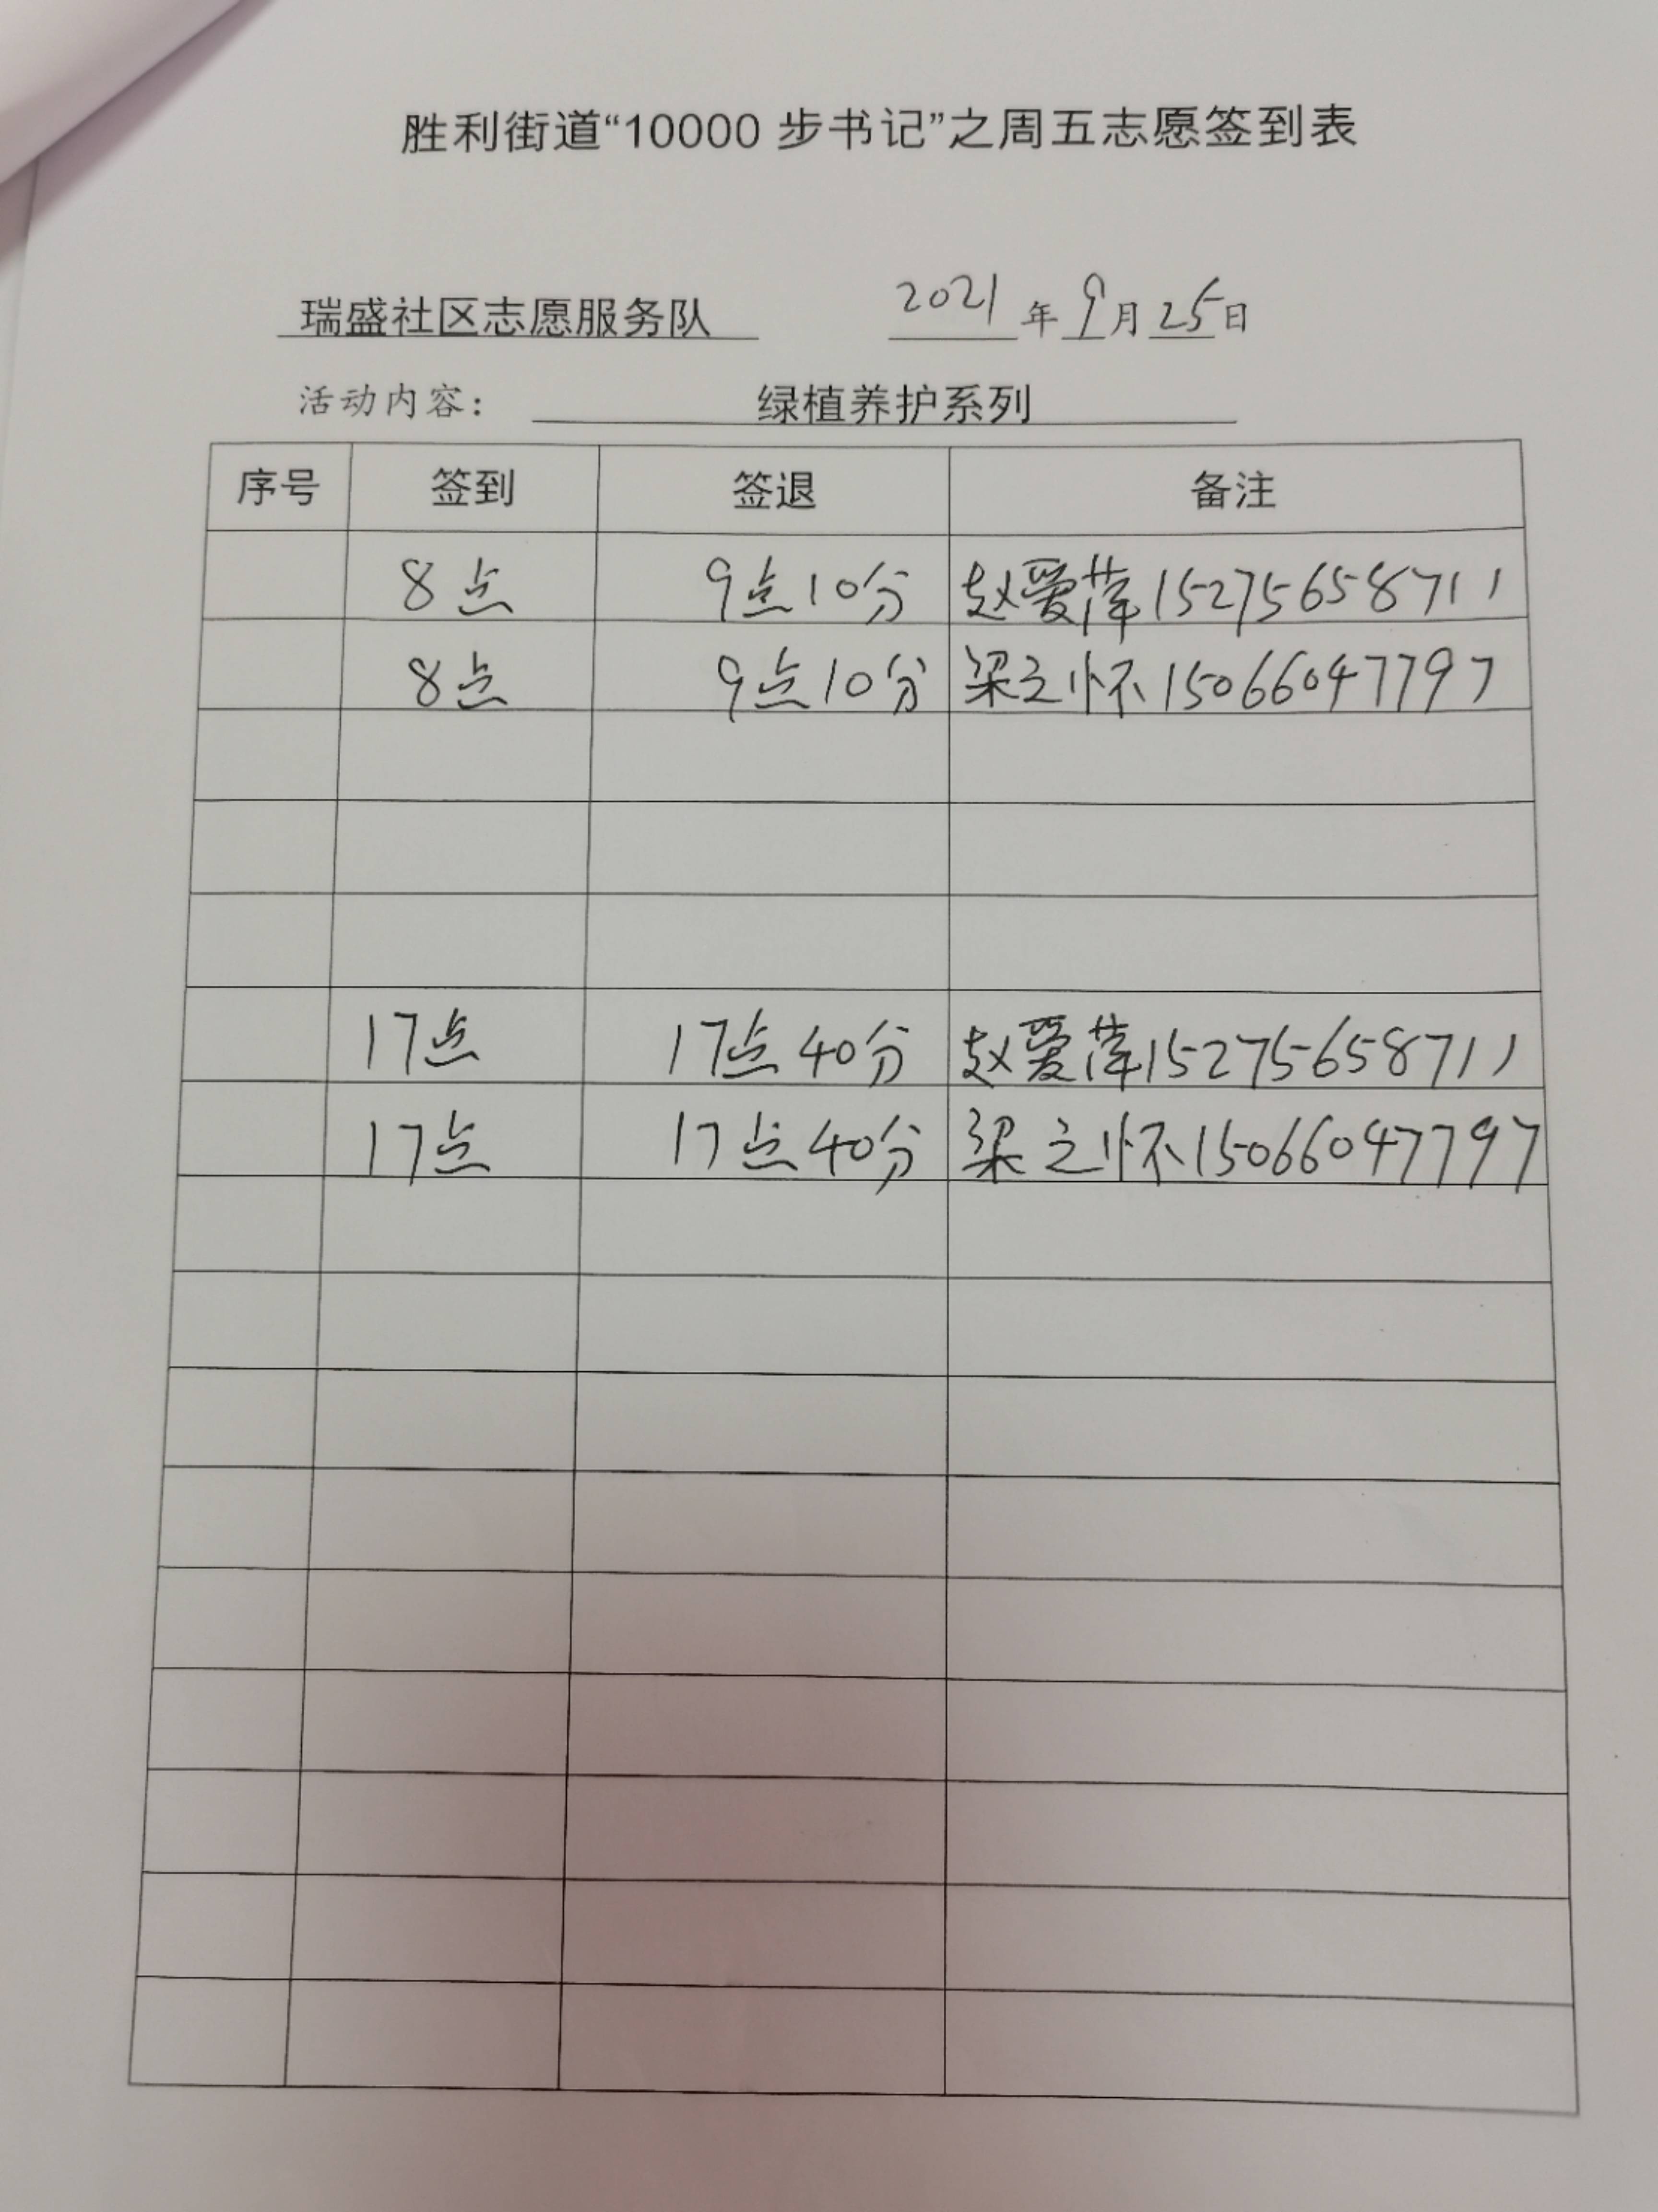 胜利街道“10000 步书记”之周五志愿签到表
瑞盛社区志愿服务队 2021 年 9 月 25 日
活动内容： 绿植养护系列
序号 签到 签退 备注
8点 9点10分 赵爱萍15275658711
8点 9点10分 梁之怀15066047797
17点 17点40分 赵爱萍15275658711
17点 17点40分 梁之怀15066047797